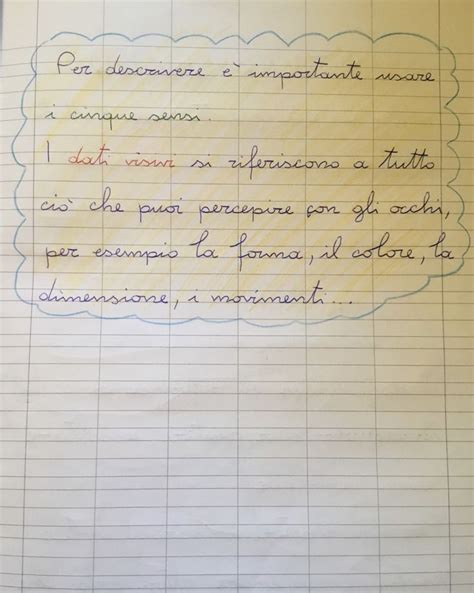 Per descrivere è importante usare
i cinque sensi.
I dati visivi si riferiscono a tutto
ciò che puoi percepire con gli occhi,
per esempio la forma, il colore, la
dimensione, i movimenti...